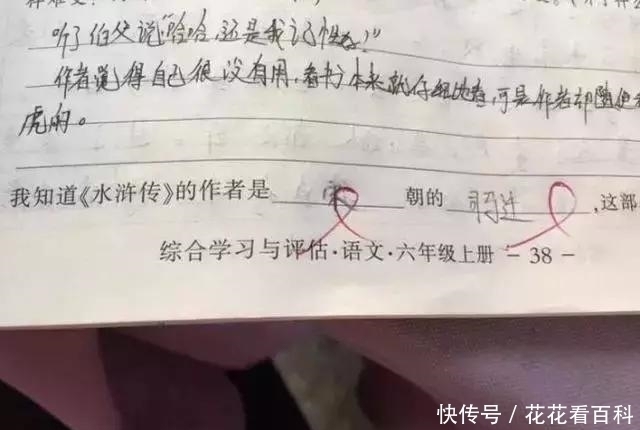 听了伯父说"哈哈,还是我记性好!"
作者觉得自己很没有用,看书本来就仔细地看,可是作者却随便
虎的。
我知道《水浒传》的作者是 宋 朝的 司马迁 ,这部
综合学习与评估·语文·六年级上册 - 38 -
快传号 / 花花看百科